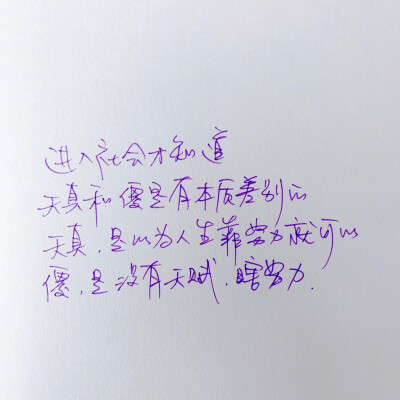 进入社会才知道
天真和傻是有本质差别的
天真，是以为人生靠努力就可以
傻，是没有天赋，瞎努力.